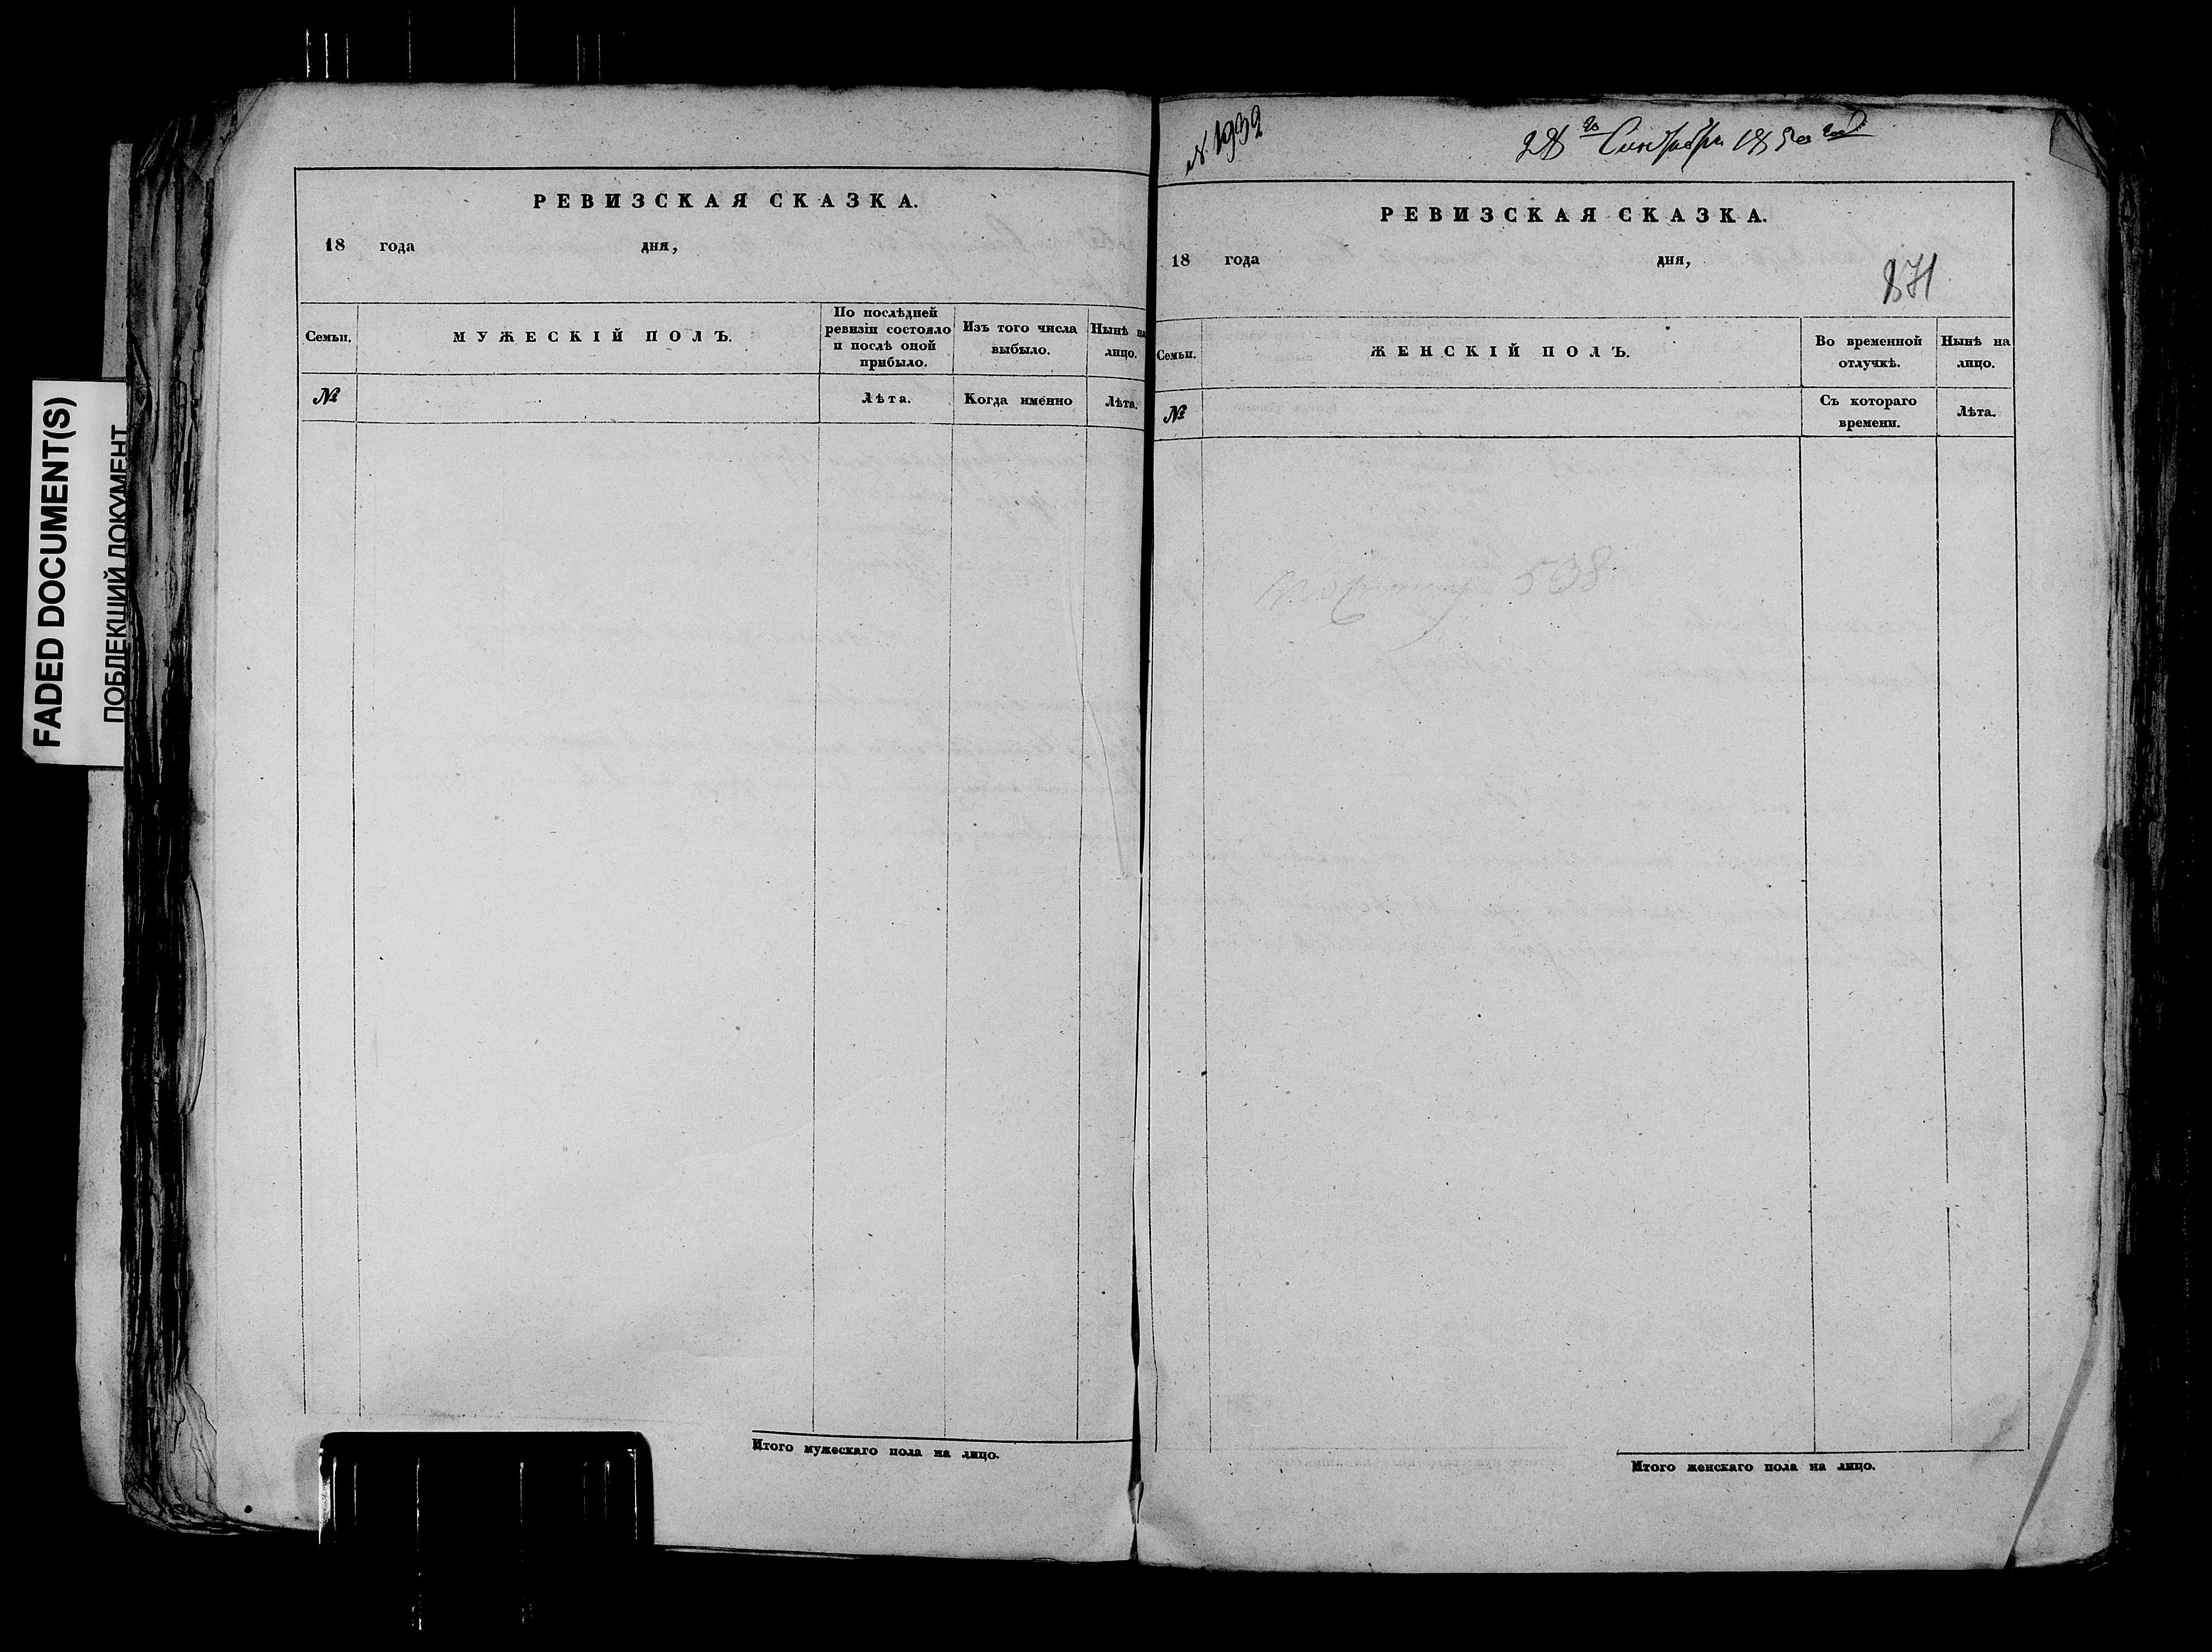 FADED DOCUMENT(S)
ПОБЛЕКШИЙ ДОКУМЕНТ
РЕВИЗСКАЯ СКАЗКА.
18 года дня,
Семьи.
МУЖЕСКІЙ ПОЛЪ.
По послѣдней
ревизіи состояло
и послѣ оной
прибыло.
Изъ того числа
выбыло.
Нынѣ на
лицо.
№
Лѣта.
Когда именно
Лѣта.
Итого мужескаго пола на лицо.
N. 1932
28го Сентября 1850 год
РЕВИЗСКАЯ СКАЗКА.
18 года дня,
871
Семьи.
ЖЕНСКІЙ ПОЛЪ.
Во временной
отлучкѣ.
Нынѣ на
лицо.
№
Съ котораго
времени.
Лѣта.
538
Итого женскаго пола на лицо.